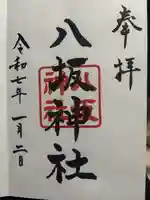 奉拝
八坂神社
令和七年一月二日